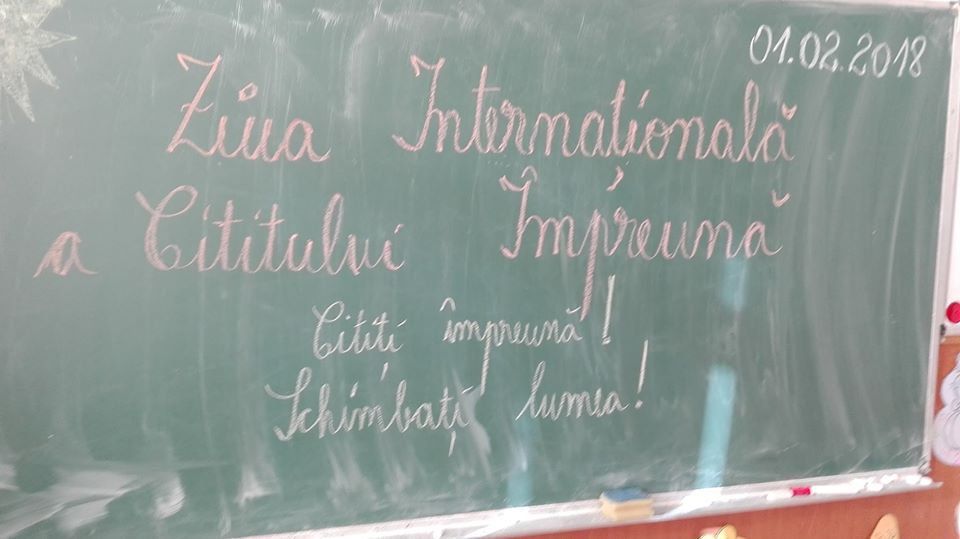 01.02.2018
Ziua Internațională
a Cititului Împreună
Citiți împreună!
Schimbați lumea!